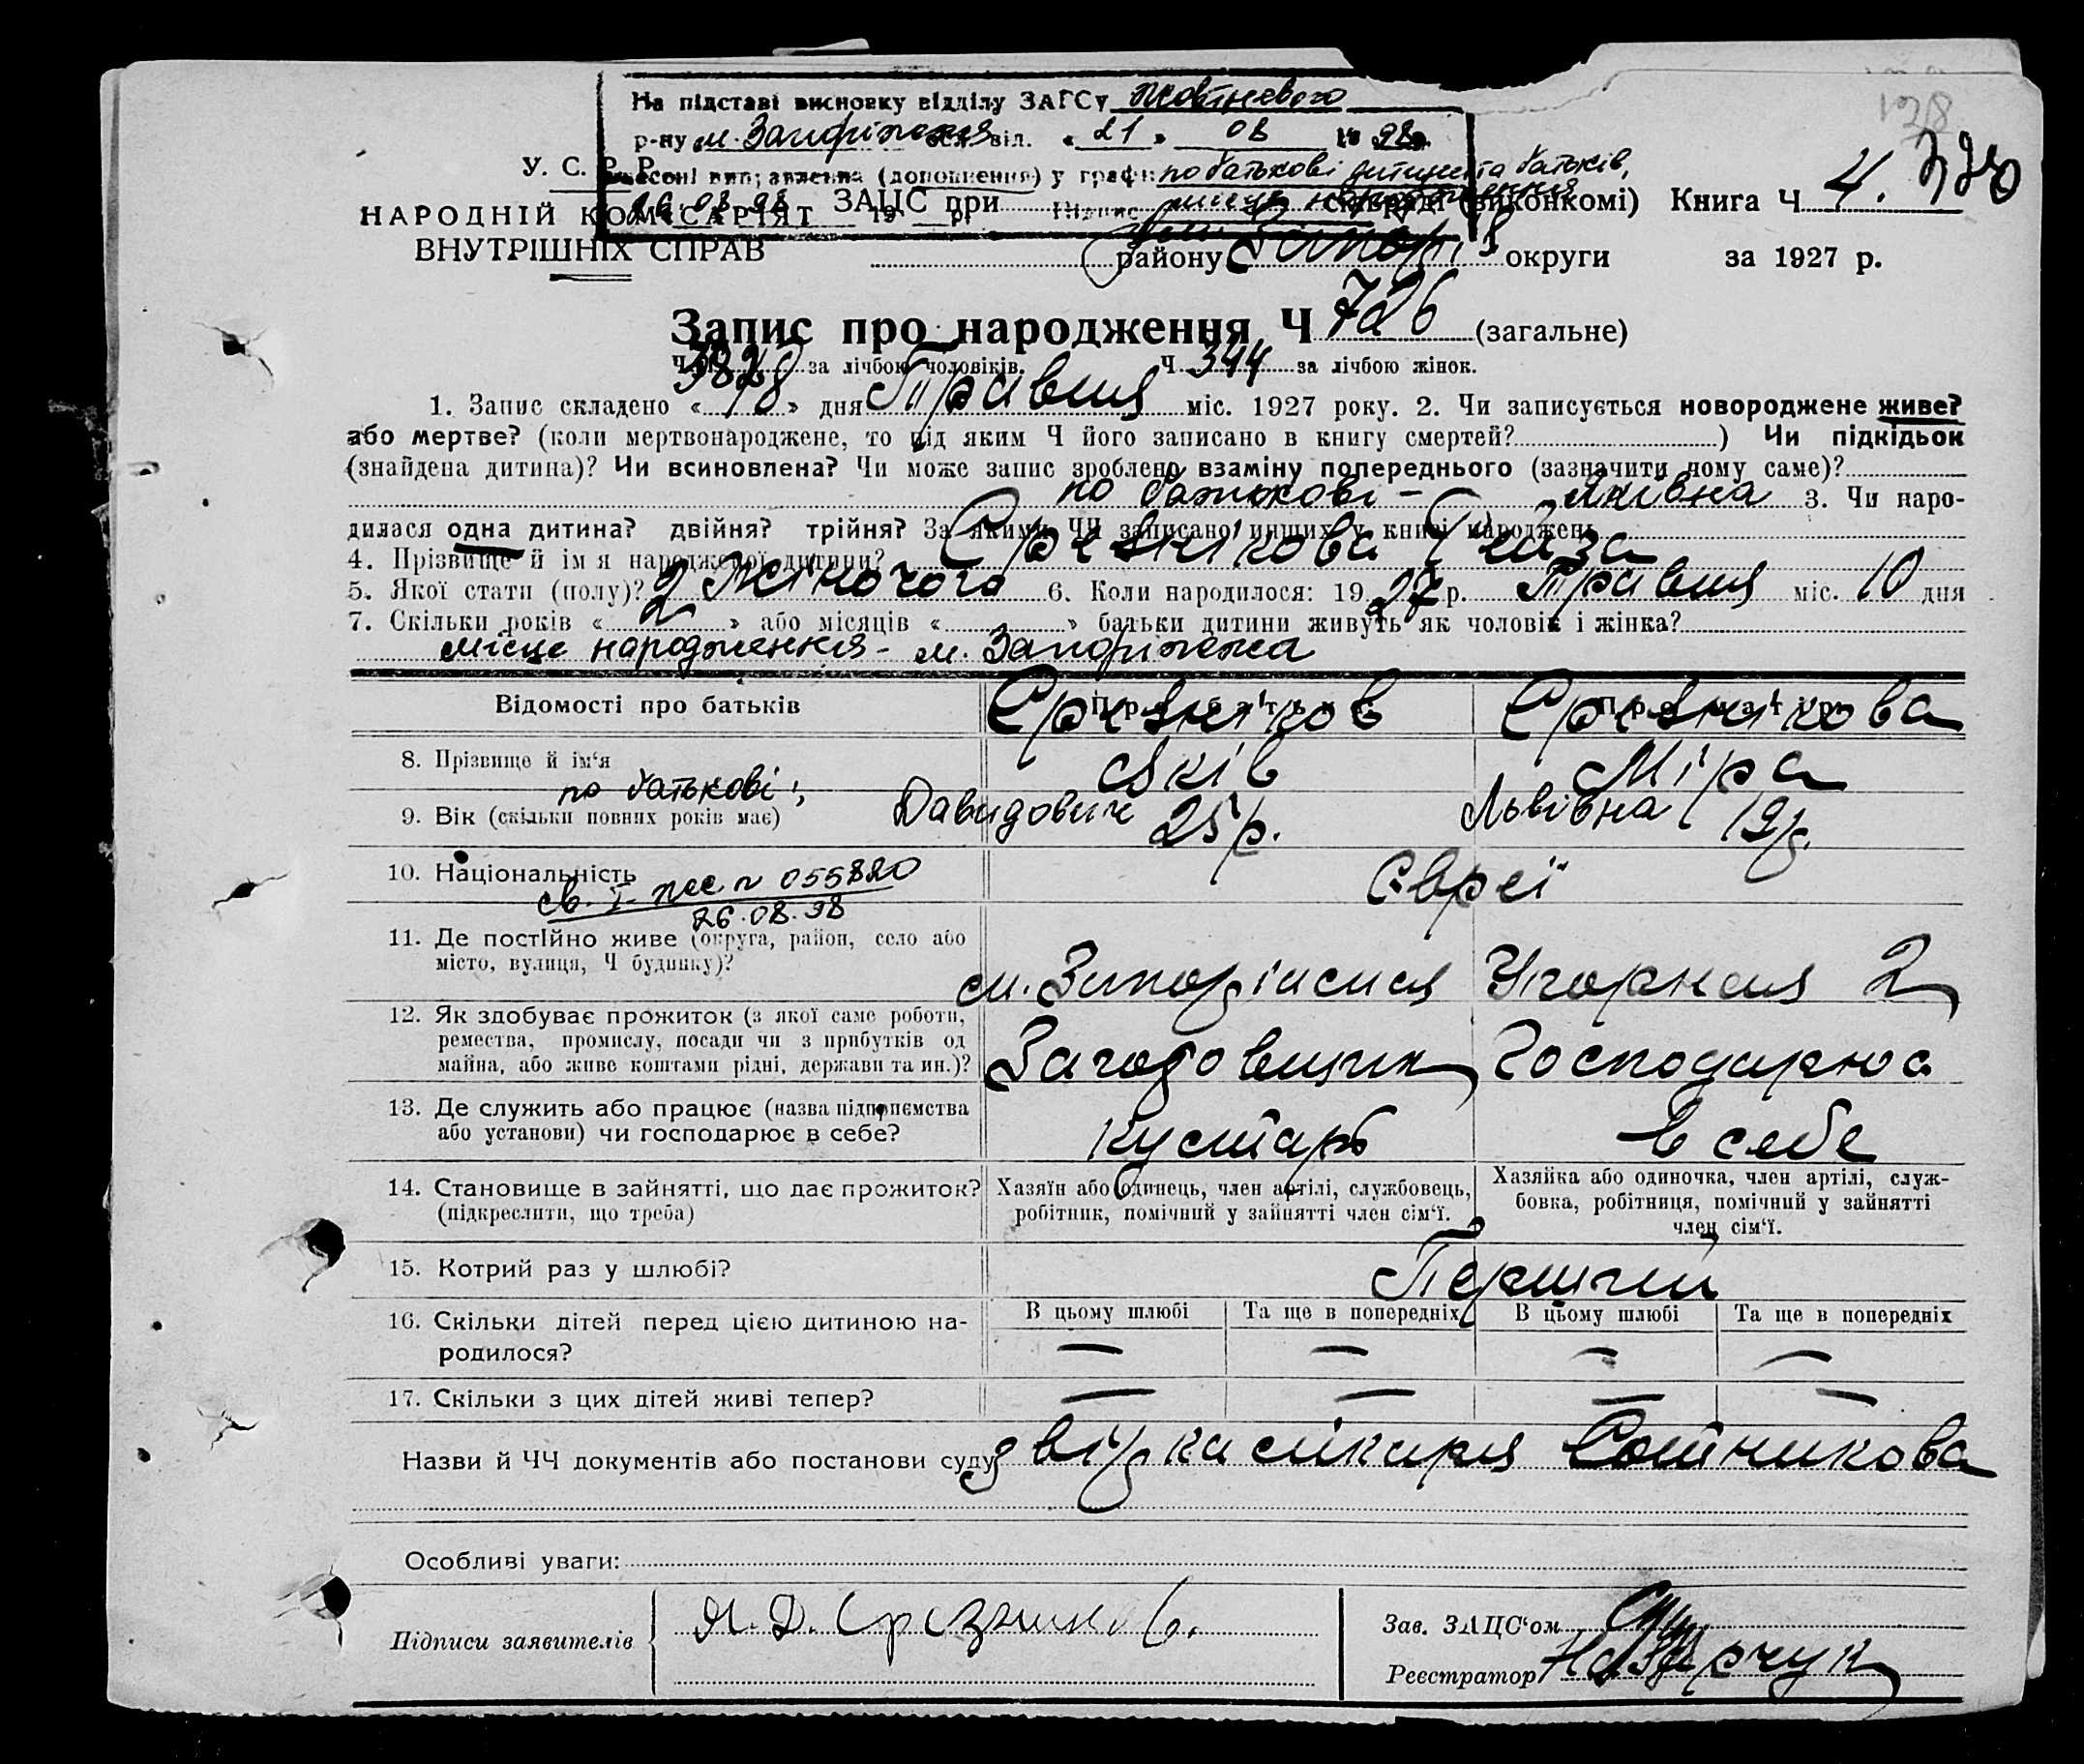 На підставі висновку відділу ЗАГСу Жовтневого
р-ну м. Запоріжжя обл. від. « 21 » 08 19 98р.
внесені виправлення (доповнення) у графи: по батькові дитини та батьків,
місце народження
26.08.98 19 р. Підпис
128
У. С. Р. Р.
НАРОДНІЙ КОМІСАРІЯТ
ВНУТРІШНІХ СПРАВ
ЗАЦС при (виконкомі) Книга Ч 4.
району Запоріз округи за 1927 р.
Запис про народження Ч 726 (загальне)
Ч 382 за лічбою чоловіків. Ч 344 за лічбою жінок.
1. Запис складено « 18 » дня Травня міс. 1927 року. 2. Чи записується новороджене живе?
або мертве? (коли мертвонароджене, то під яким Ч його записано в книгу смертей? ) Чи підкідьок
(знайдена дитина)? Чи всиновлена? Чи може запис зроблено взаміну попереднього (зазначити чому саме)?
по батькові – Яківна 3. Чи наро-
дилася одна дитина? двійня? трійня? За якими ЧЧ записано инших у книзі народжень
4. Прізвище й ім'я народженої дитини? Срезнікова Раїза
5. Якої стати (полу)? Жіночого 6. Коли народилося: 19 27 р. Травня міс. 10 дня
7. Скільки років « 2 » або місяців « » батьки дитини живуть як чоловік і жінка?
місце народження – м. Запоріжжя
Відомості про батьків Про батька Про матір
8. Прізвище й ім'я Срезніков Яків Срезнікова Міра
по батькові: Давидович Львівна
9. Вік (скільки повних років має) 25 р. 19 р.
10. Національність Євреї
св. I-ЖС № 055820
26.08.98
11. Де постійно живе (округа, район, село або
місто, вулиця, Ч будинку)? м. Запоріжжя Угорная 2
12. Як здобуває прожиток (з якої саме роботи,
ремества, промислу, посади чи з прибутків од
майна, або живе коштами рідні, держави та ин.)? Заготовщик Господарює
13. Де служить або працює (назва підприємства
або установи) чи господарює в себе? кустарь в себе
14. Становище в зайнятті, що дає прожиток?
(підкреслити, що треба)
Хазяїн або одинець, член артілі, службовець,
робітник, помічний у зайнятті член сім'ї.
Хазяйка або одиночка, член артілі, служ-
бовка, робітниця, помічний у зайнятті
член сім'ї.
15. Котрий раз у шлюбі? Перший
16. Скільки дітей перед цією дитиною на-
родилося?
В цьому шлюбі Та ще в попередніх В цьому шлюбі Та ще в попередніх
— — — —
17. Скільки з цих дітей живі тепер? — — — —
Назви й ЧЧ документів або постанови суду Довідка лікаря Сотникова
Особливі уваги:
Підписи заявителів Я. Д. Срезников.
Зав. ЗАЦС'ом
Реєстратор Назарчук